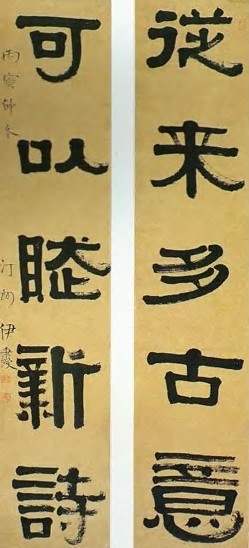 從来多古意
可以賦新詩
丙寅仲冬 汀州伊秉綬